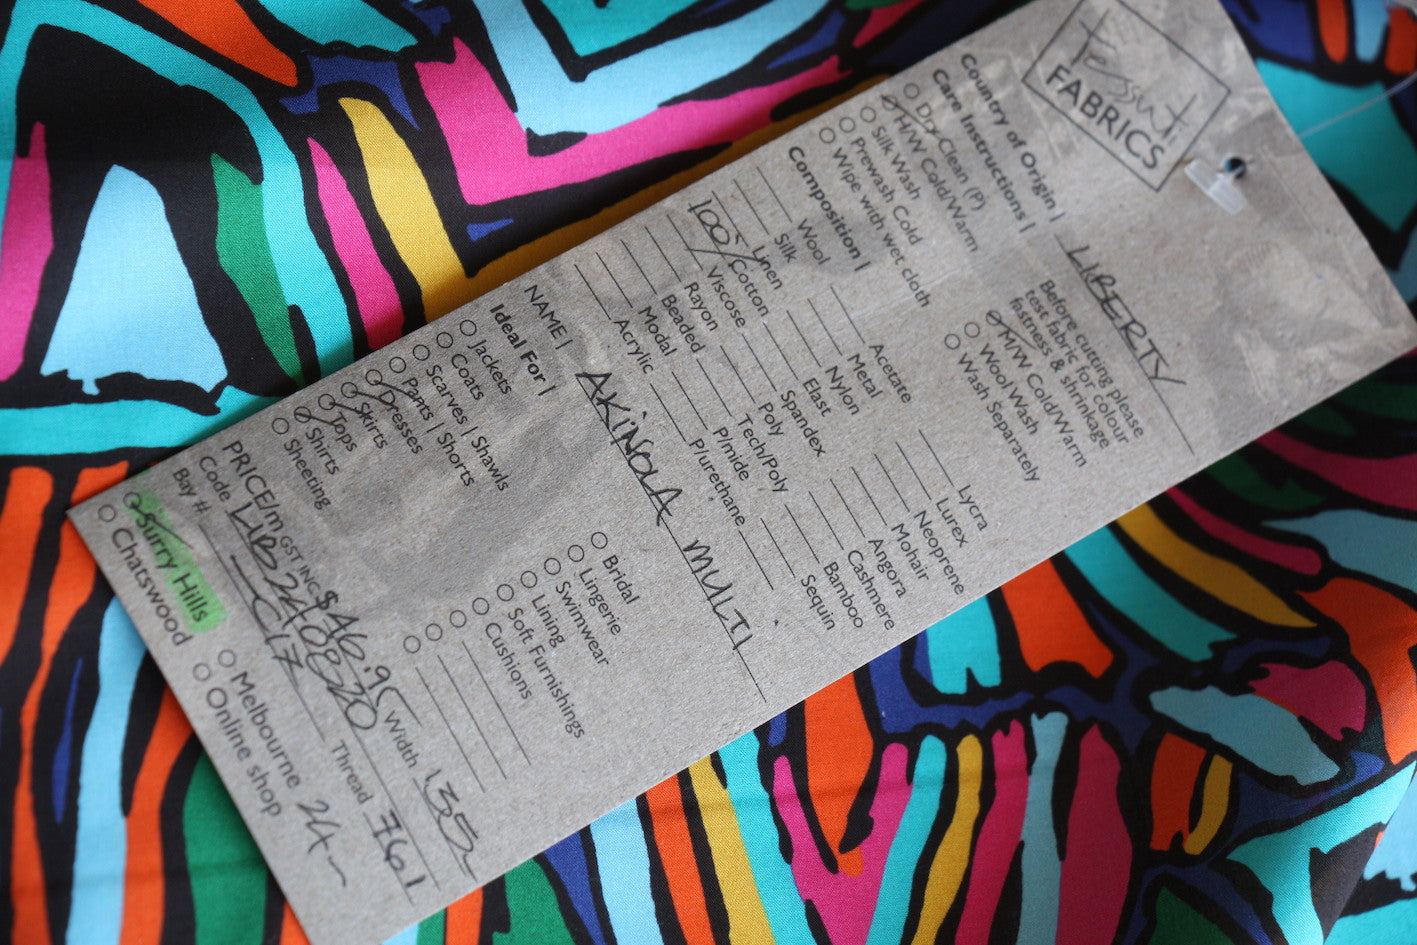 Tessuti
FABRICS
Country of Origin | LIBERTY
Care Instructions |
Before cutting please
test fabric for colour
fastness & shrinkage
Dry Clean (P)
H/W Cold/Warm
Silk Wash
Prewash Cold
Wipe with wet cloth
M/W Cold/Warm
Wool Wash
Wash Separately
Composition |
Wool
Silk
Linen
100% Cotton
Viscose
Rayon
Beaded
Modal
Acrylic
Acetate
Metal
Nylon
Elast
Spandex
Poly
Tech/Poly
P/mide
P/urethane
Lycra
Lurex
Neoprene
Mohair
Angora
Cashmere
Bamboo
Sequin
NAME | AKINOLA MULTI
Ideal For |
Jackets
Coats
Scarves | Shawls
Pants | Shorts
Dresses
Skirts
Tops
Shirts
Sheeting
Bridal
Lingerie
Swimwear
Lining
Soft Furnishings
Cushions
PRICE/m GST INC $46.95 Width 135
Code LIB240820 Thread 761
Bay # C17
Surry Hills
Chatswood
Melbourne 24
Online shop